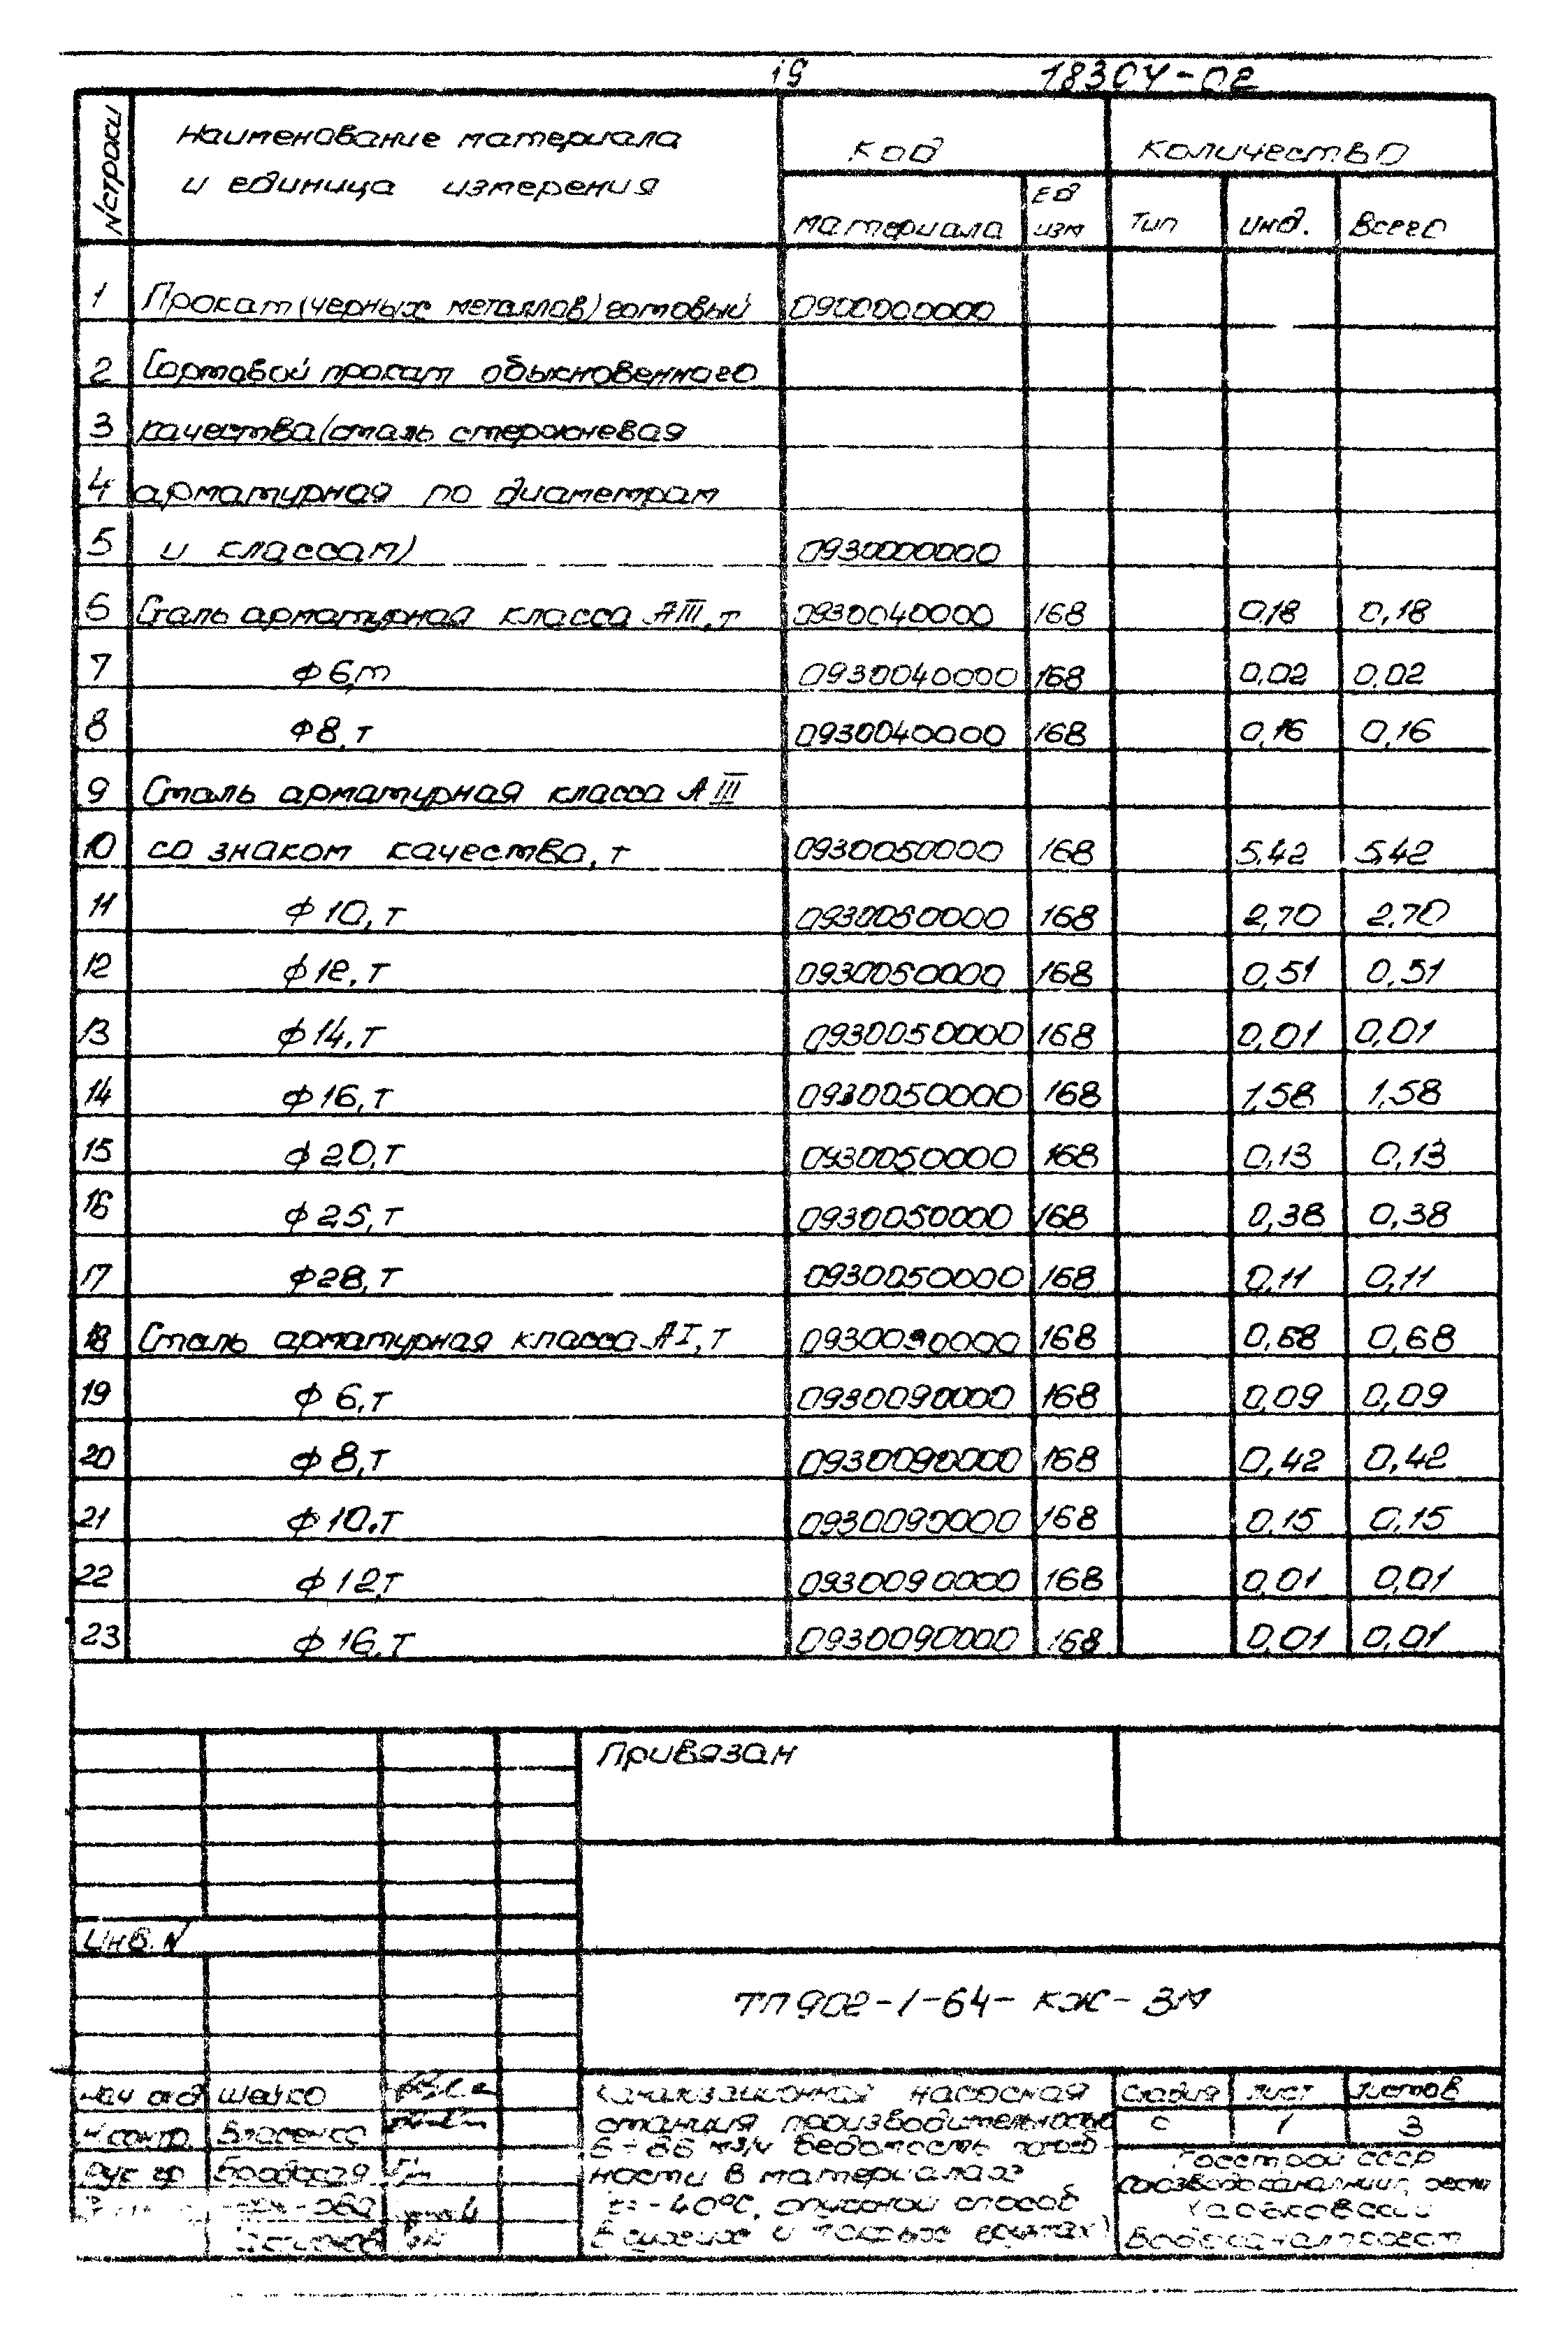 19 18304-02
№ строки Наименование материала Код Количество
и единица измерения материала Ед изм Тип Инд. Всего
1 Прокат (черных металлов) готовый 0900000000
2 Сортовой прокат обыкновенного
3 качества (сталь стержневая
4 арматурная по диаметрам
5 и классам) 0930000000
6 Сталь арматурная класса АIII, т 0930040000 168 0,18 0,18
7 ф 6, т 0930040000 168 0,02 0,02
8 ф 8, т 0930040000 168 0,16 0,16
9 Сталь арматурная класса АIII
10 со знаком качества, т 0930050000 168 5,42 5,42
11 ф 10, т 0930050000 168 2,70 2,70
12 ф 12, т 0930050000 168 0,51 0,51
13 ф 14, т 0930050000 168 0,01 0,01
14 ф 16, т 0930050000 168 1,58 1,58
15 ф 20, т 0930050000 168 0,13 0,13
16 ф 25, т 0930050000 168 0,38 0,38
17 ф 28, т 0930050000 168 0,11 0,11
18 Сталь арматурная класса АI, т 0930090000 168 0,68 0,68
19 ф 6, т 0930090000 168 0,09 0,09
20 ф 8, т 0930090000 168 0,42 0,42
21 ф 10, т 0930090000 168 0,15 0,15
22 ф 12, т 0930090000 168 0,01 0,01
23 ф 16, т 0930090000 168 0,01 0,01
Привязан
Инв. N
ТП 902-1-64-КЖ-ЗМ
Нач отд Шейко
Н контр. Власенко
Рук гр
Канализационная насосная
станция производительностью
м3/ч Ведомость
ности в материалах
-40°С, опускной способ
и грунтах)
Стадия Лист Листов
С 1 3
Госстрой СССР
Харьковский
Водоканалпроект